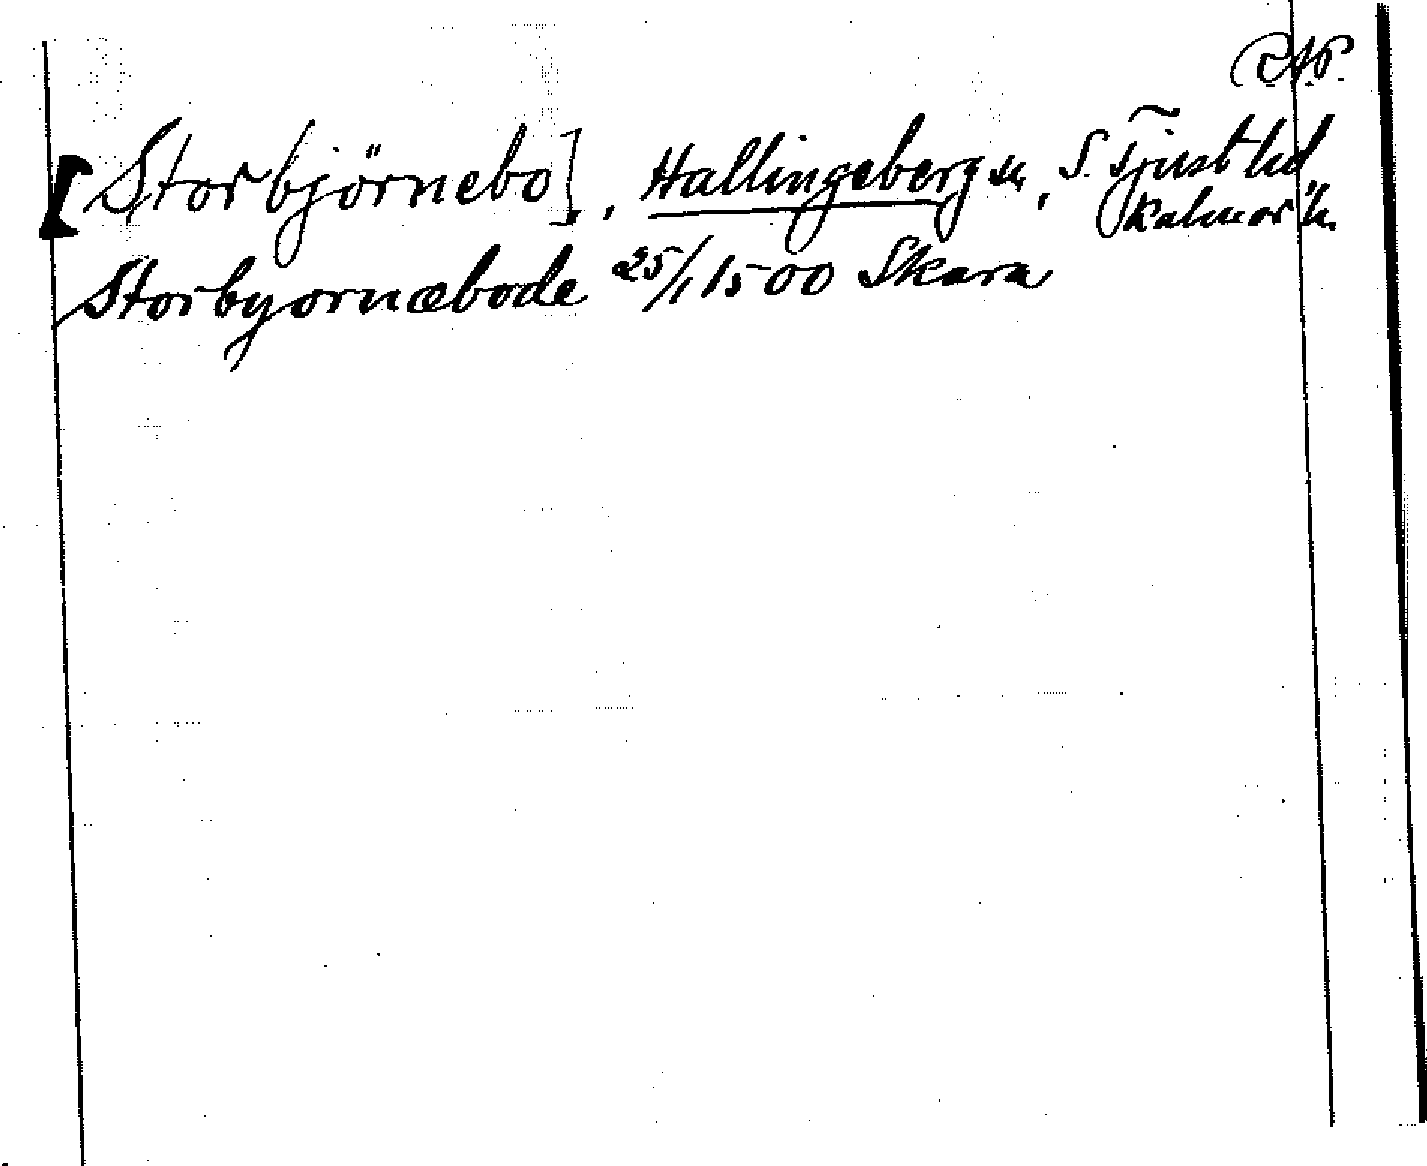 RAP.
[Storbjörnebo], Hallingeberg sn, S. Tjust hd
Kalmar län
Storbyornæbode 25/1 1500 Skara